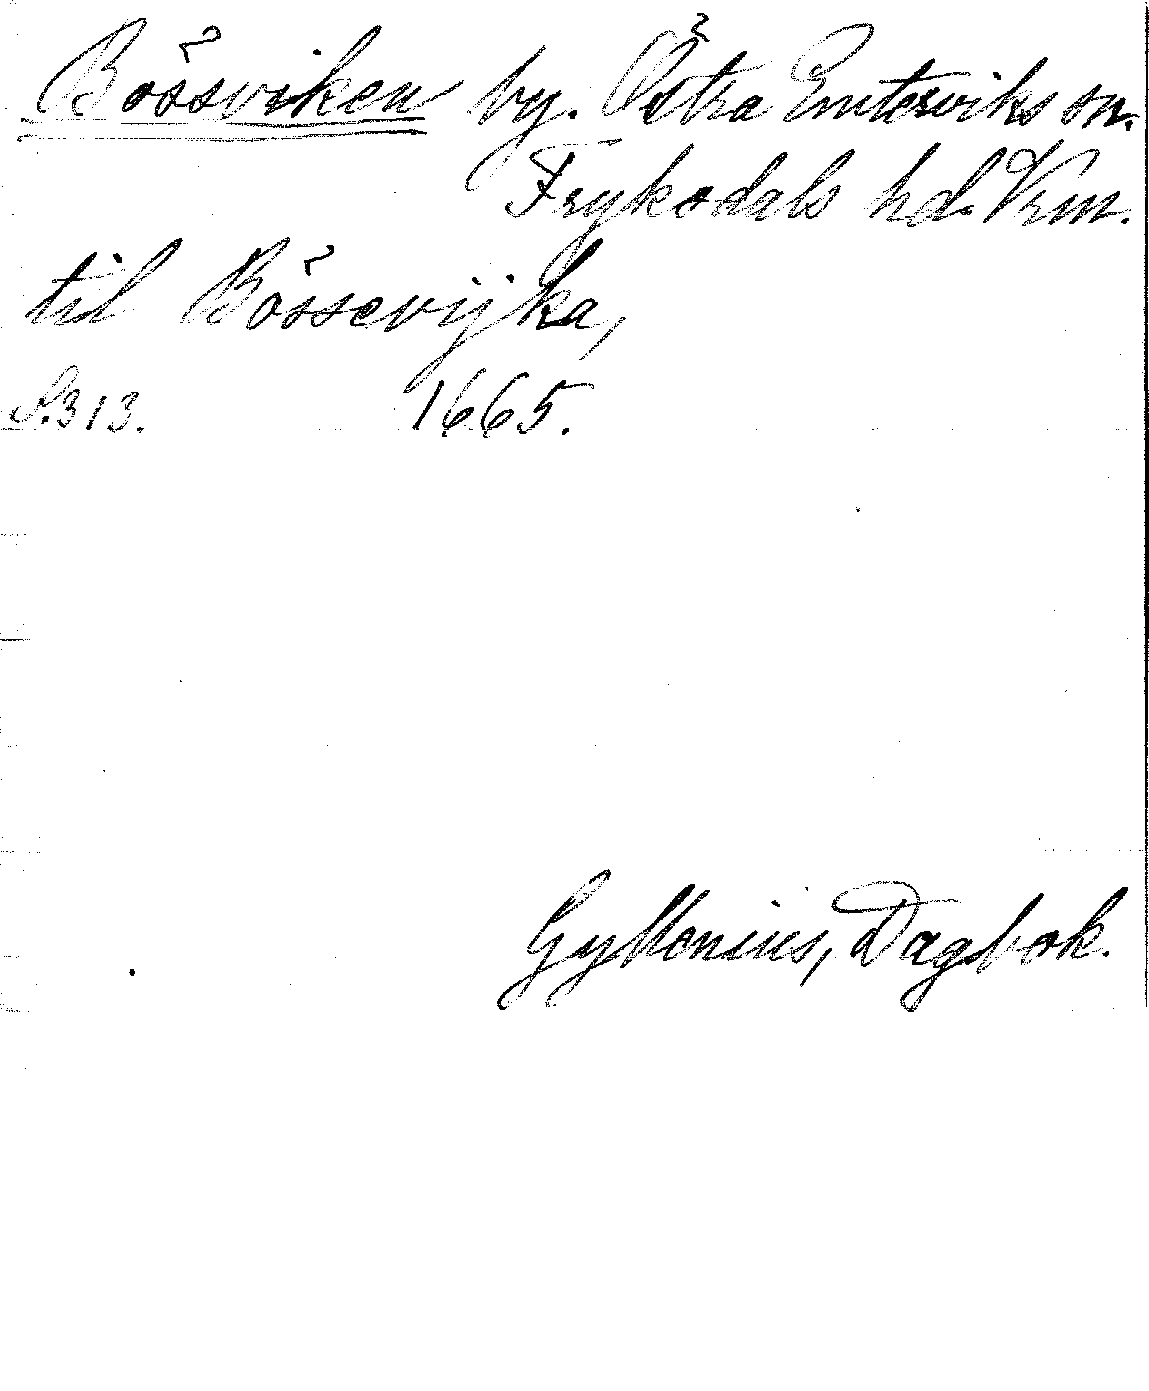 Bössviken by. Östra Emterviks sn.
Fryksdals hd. Vrm.
till Bössevijka,
S. 313. 1665.
Gyllenius, Dagbok.